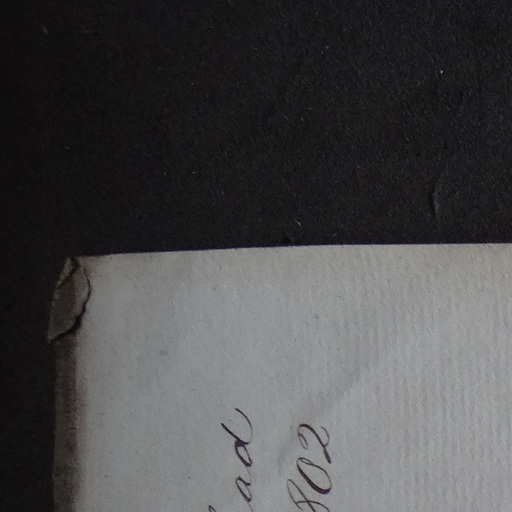 ad
802